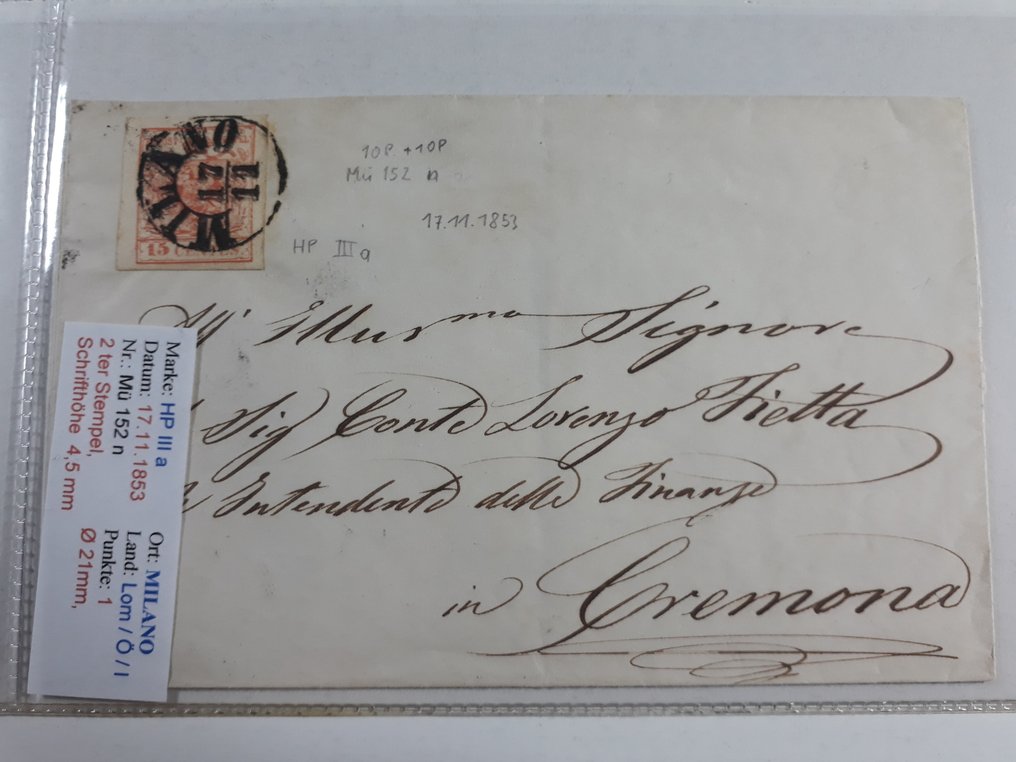 MILANO
17
11
15 CENTES.
10P. + 10P
Mü 152 n
17.11.1853
HP III a
All' Illus ma Signore
Sig Conte Lorenzo Fietta
Intendente delle Finanze
in Cremona
Marke: HP III a Ort: MILANO
Datum: 17.11.1853 Land: Lom / Ö / I
Nr.: Mü 152 n Punkte: 1
2 ter Stempel, Ø 21mm,
Schrifthöhe 4,5 mm